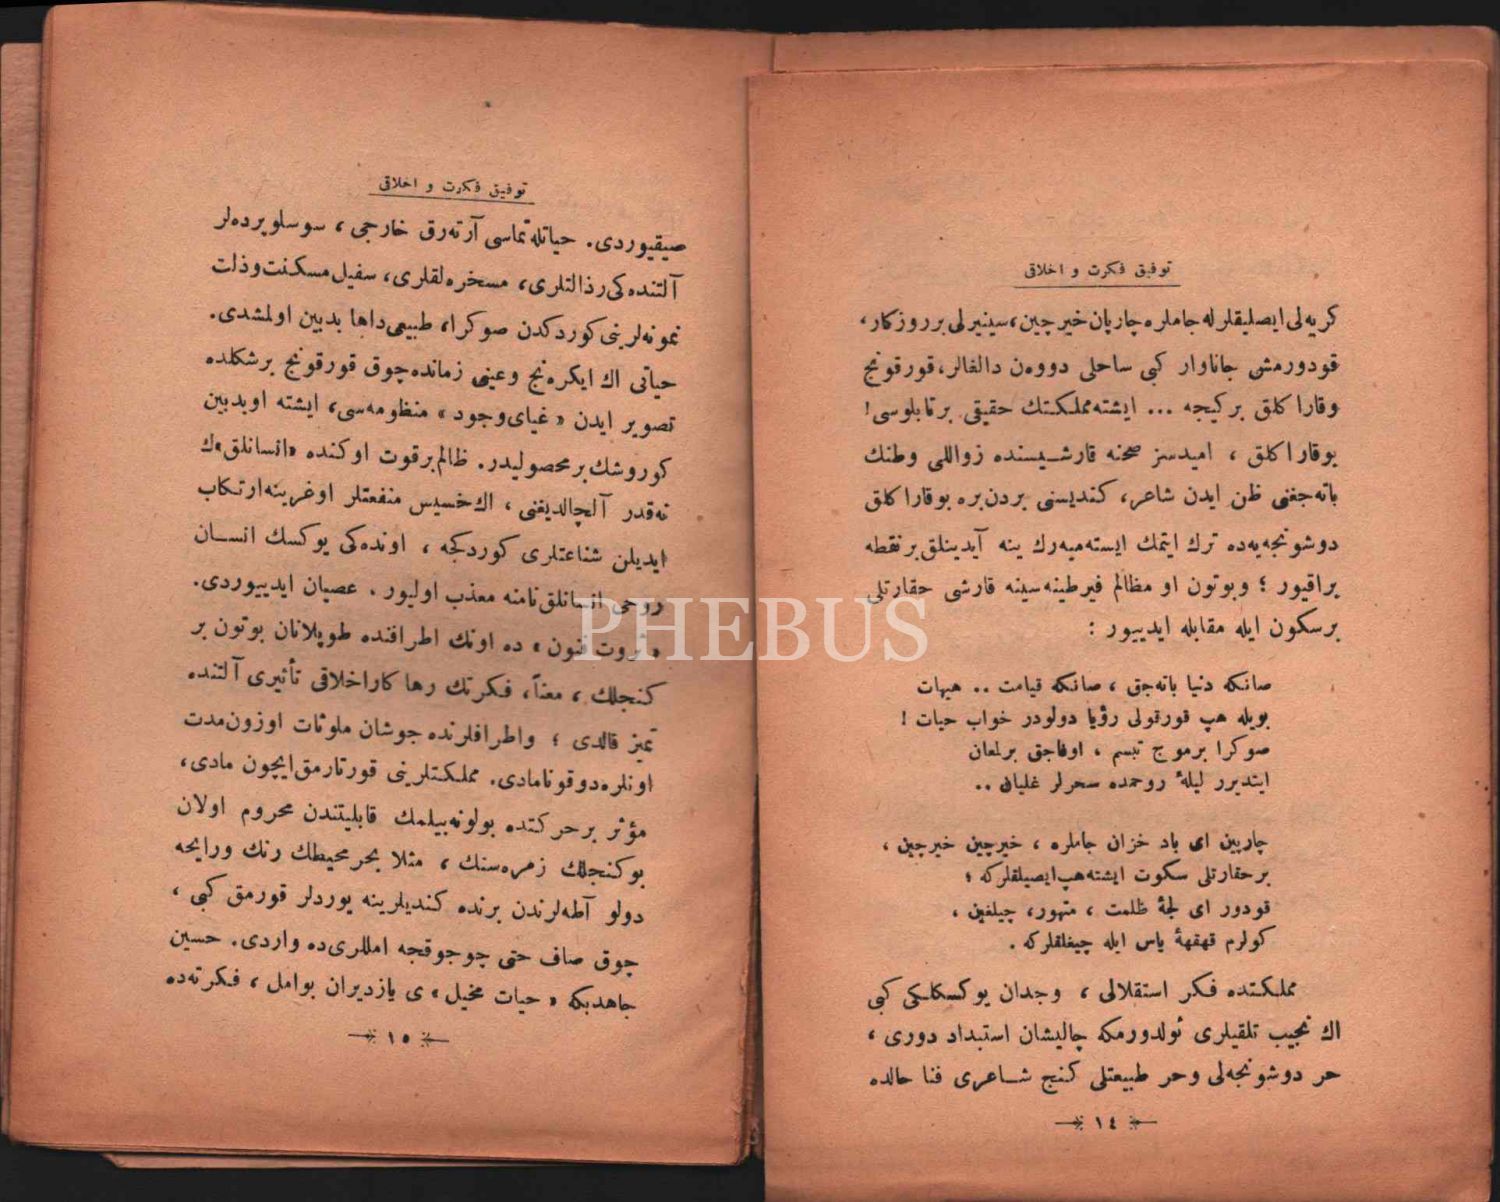 توفيق فكرت و اخلاقى
كريه‌لى ايصليقلرله جاملره چارپان خيرچين، سينيرلى بر روزكار،
قودورمشى جاناوار كبى ساحلى دووه‌ن دالغالر، قورقونج
وقاراكلق بر كيجه ... ايشته مملكتك حقيقى بر تابلوسى!
بوقاراكلق ، اميدسز صحنه قارشيسنده زواللى وطنك
باته‌جغنى ظن ايدن شاعر، كنديسنى بردن بره بوقاراكلق
دوشونجه‌يه‌ده ترك ايتمك ايسته‌ميه‌رك ينه آيدينلق بر نقطه
براقيور ؛ وبوتون او مظالم فيرطينه‌سينه قارشى حقارتلى
بر سكون ايله مقابله ايدييور :
صانكه دنيا باته‌جق ، صانكه قيامت .. هيهات
بويله هپ قورقولى رؤيا دولودر خواب حيات !
صوكرا بر موج تبسم ، اوفاجق بر لمعان
ايتديرر ليلهٔ روحمده سحرلر غليان ..
چارپين اى باد خزان جاملره ، خيرچين خيرچين ،
بر حقارتلى سكوت ايشته هپ ايصيلقلركه ؛
قودور اى لجهٔ ظلمت ، متهور، چيلغين ،
كولرم قهقههٔ يأس ايله چيغلقلركه .
مملكتده فكر استقلالى ، وجدان يوكسكلكى كبى
اك نجيب تلقيلرى ئولدورمكه چاليشان استبداد دورى ،
حر دوشونجه‌لى وحر طبيعتلى كنج شاعرى فنا حالده
١٤
توفيق فكرت و اخلاقى
صيقيوردى. حياتله تماسى آرته‌رق خارجى ، سوسلو پرده‌لر
آلتنده‌كى رذالتلرى، مسخره‌لقلرى، سفيل مسكنت وذلت
نمونه‌لرينى كوردكدن صوكرا، طبيعى داها بدبين اولمشدى.
حياتى اك ايكره‌نج وعينى زمانده چوق قورقونج بر شكلده
تصوير ايدن « غياى وجود » منظومه‌سى، ايشته اوبدبين
كوروشك بر محصوليدر. ظالم بر قوت اوكنده «انسانلق»ك
نه‌قدر آلچالديغنى ، اك خسيس منفعتلر اوغرينه ارتكاب
ايديلن شناعتلرى كوردكجه ، اونده‌كى يوكسك انسان
روحى انسانلق نامنه معذب اوليور . عصيان ايدييوردى.
« ثروت فنون » ده اونك اطرافنده طوپلانان بوتون بر
كنجلك ، معناً، فكرتك رهاكار اخلاقى تأثيرى آلتنده
تميز قالدى ؛ واطرافلرنده جوشان ملوثات اوزون مدت
اونلره دوقونامادى. مملكتلرينى قورتارمق ايچون مادى،
مؤثر بر حركتده بولونه‌بيلمك قابليتندن محروم اولان
بوكنجلك زمره‌سنك ، مثلا بحر محيطك رنك ورايحه
دولو آطه‌لرندن برنده كنديلرينه يوردلر قورمق كبى ،
چوق صاف حتى چوجوقجه امللرى‌ده واردى. حسين
جاهدبكه « حيات مخيل » ى يازديران بوامل ، فكرته‌ده
١٥
PHEBUS